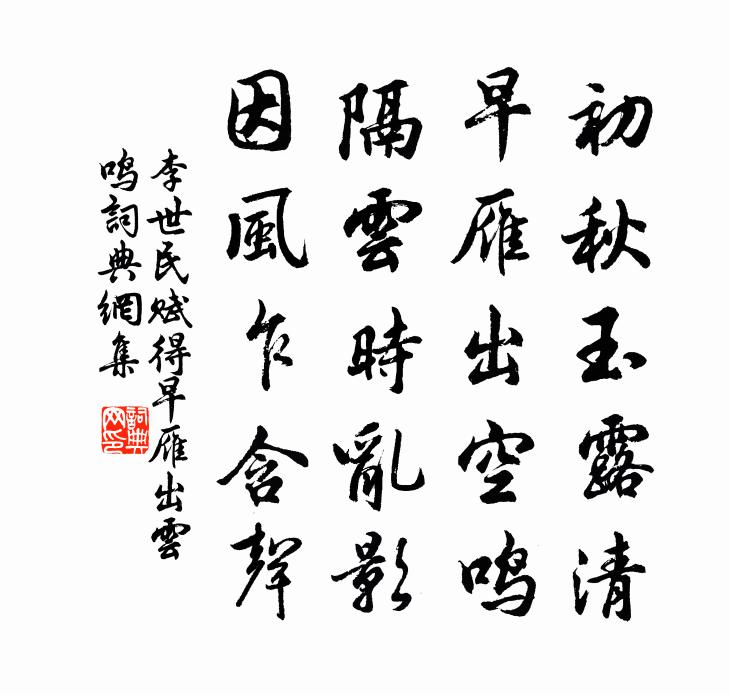 初秋玉露清
早雁出空鸣
隔雲時亂影
因風乍含聲
李世民賦得早雁出雲
鸣詞典網集
詞典网印